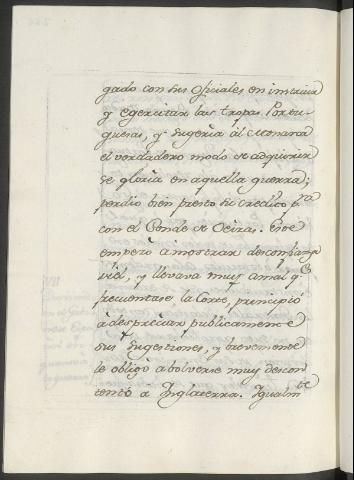 gado con sus oficiales en instruir
y egercitar las tropas Portu-
guesas, y sugeria al Monarca
el verdadero modo de adquirir
se gloria en aquella guerra;
perdio bien presto su credito
con el Conde de Oeiras. Este
empezó a mostrar desconfianza
de él, y llevava muy a mal q.e
frecuentase la Corte, principió
à despreciar publicamente
sus sugestiones, y brevemente
le obligó a bolverse muy descon
tento à Inglaterra. Igualm.te